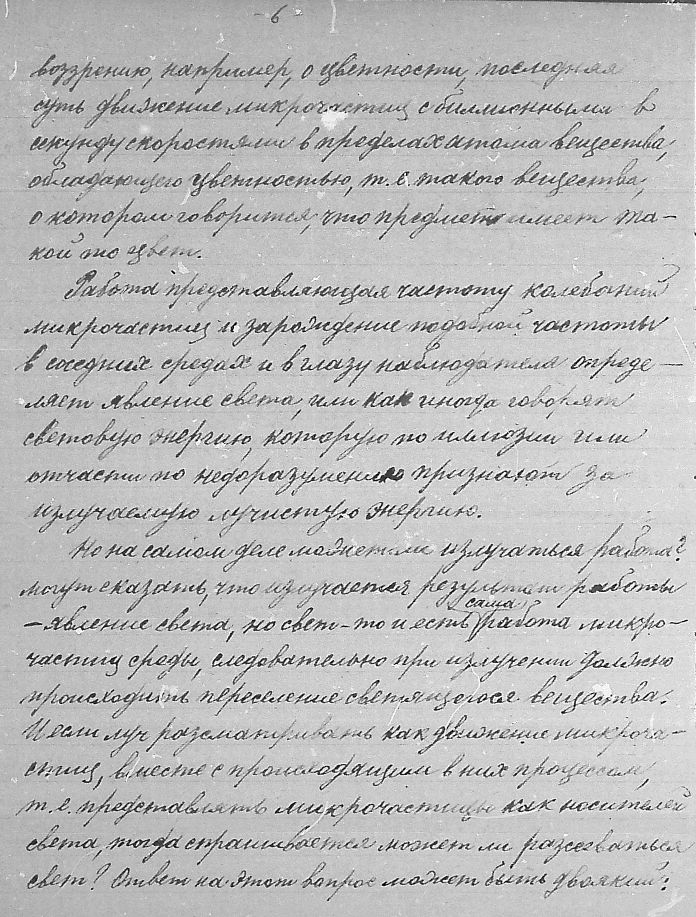 - 6 -
воззрению, например, о цветности, последняя
суть движение микрочастиц с биллионными в
секунду скоростями в пределах атома вещества,
обладающего цветностью, т.е. такого вещества,
о котором говорится, что предмет имеет та-
кой то цвет.
Работа представляющая частоту колебаний
микрочастиц и зарождение подобной частоты
в соседних средах и в глазу наблюдателя опреде-
ляет явление света, или как иногда говорят
световую энергию, которую по иллюзии или
отчасти по недоразумению признают за
излучаемую лучистую энергию.
Но на самом деле может ли излучаться работа?
могут сказать, что излучается результат работы
- явление света, но свет-то и есть сама работа микро-
частиц среды, следовательно при излучении должно
происходить переселение светящегося вещества.
И если луч разсматривать как движение микроча-
стиц, вместе с происходящим в них процессом,
т.е. представлять микрочастицы как носителей
света, тогда спрашивается может ли разсеваться
свет? Ответ на этот вопрос может быть двоякий: